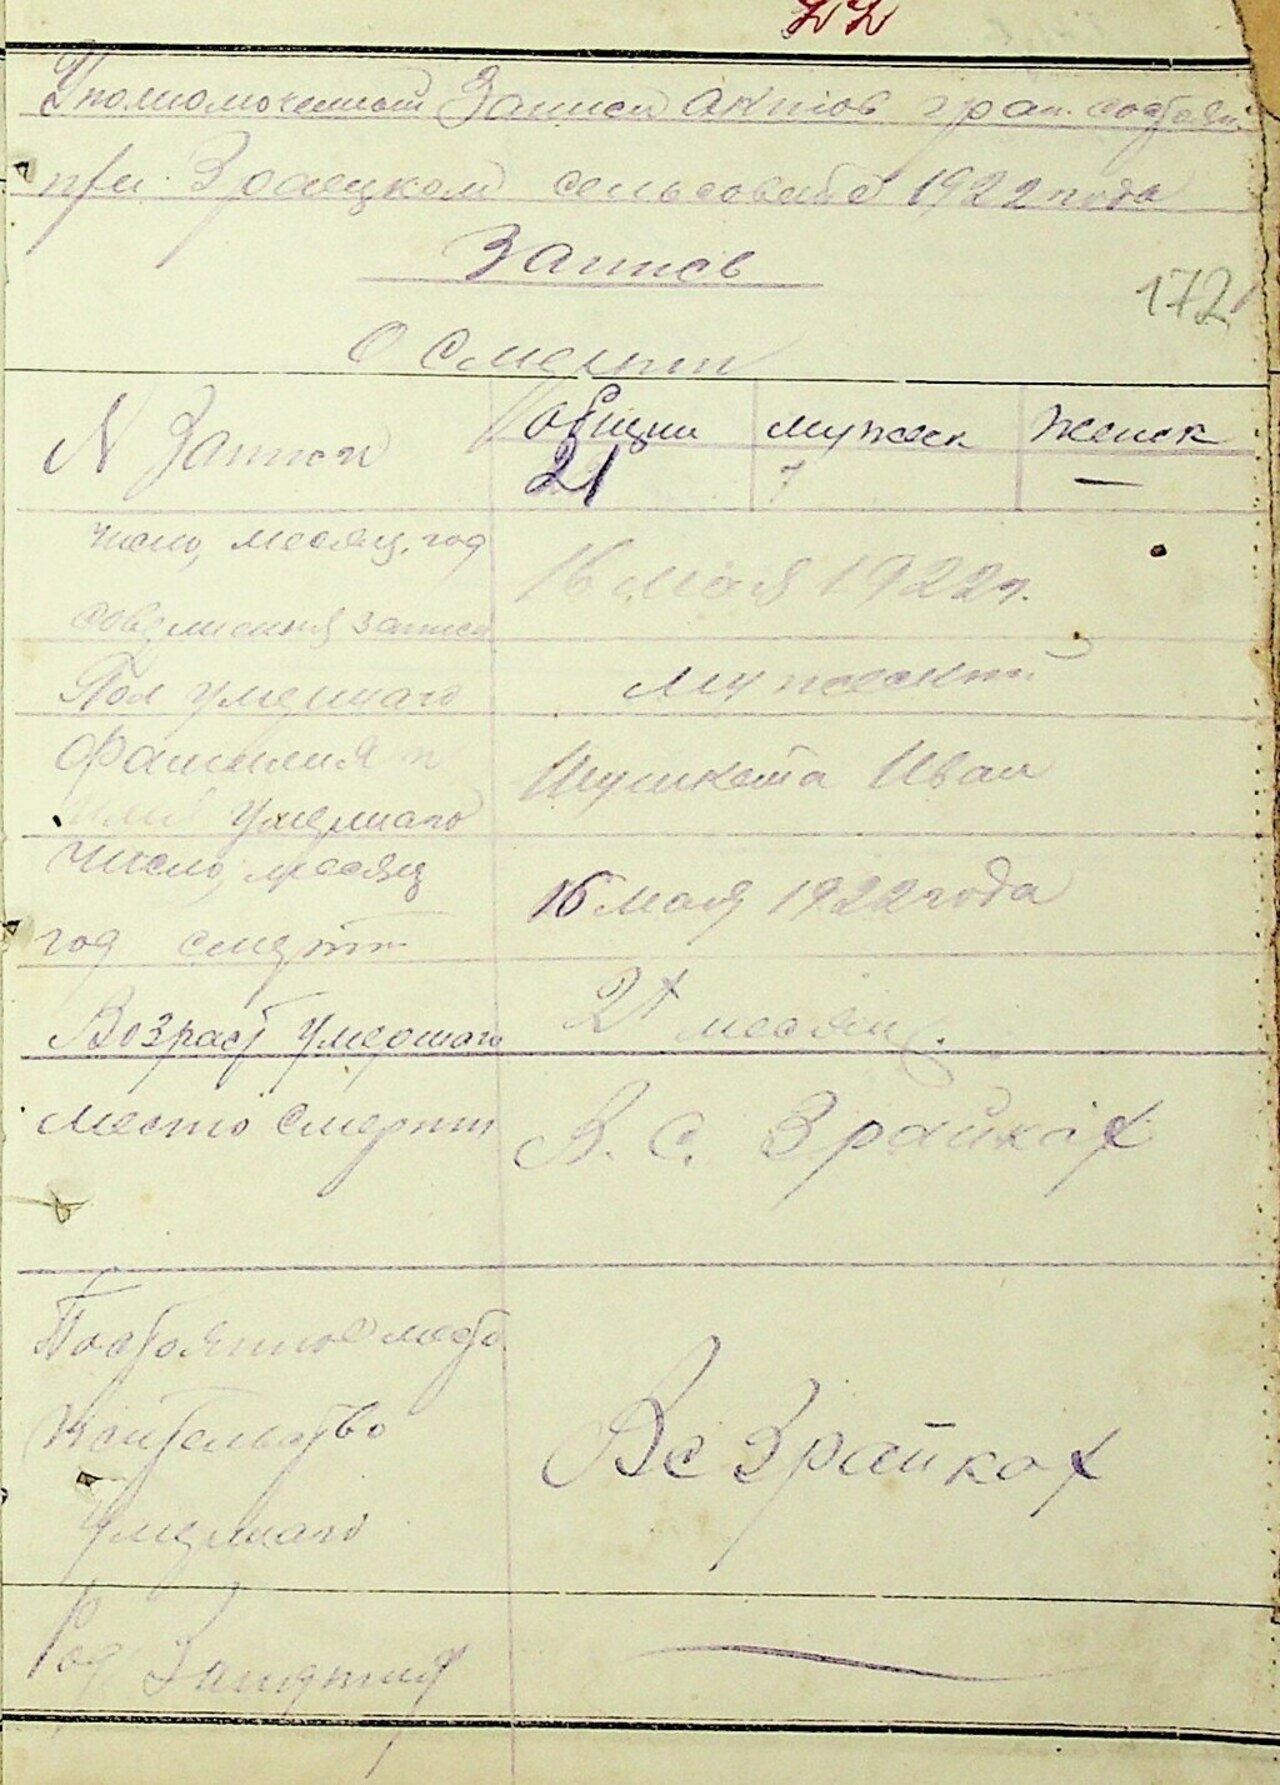 22
Уполномоченный Записи актов граж. состоян.
при Зраецком сельсовете 1922 года
Запись
172
О смерти
N Записи общий мужеск женск
21 7 —
число, месяц, год 16 мая 1922 г.
совершения записи
Пол умершаго мужеский
Фамилия и Шушкета Иван
имя умершаго
Число, месяц 16 мая 1922 года
год смерти
Возраст умершаго месяц.
место смерти В. С. Зрайках
Постоянное место
жительство Вс Зрайках
умершаго
Род Занятия —